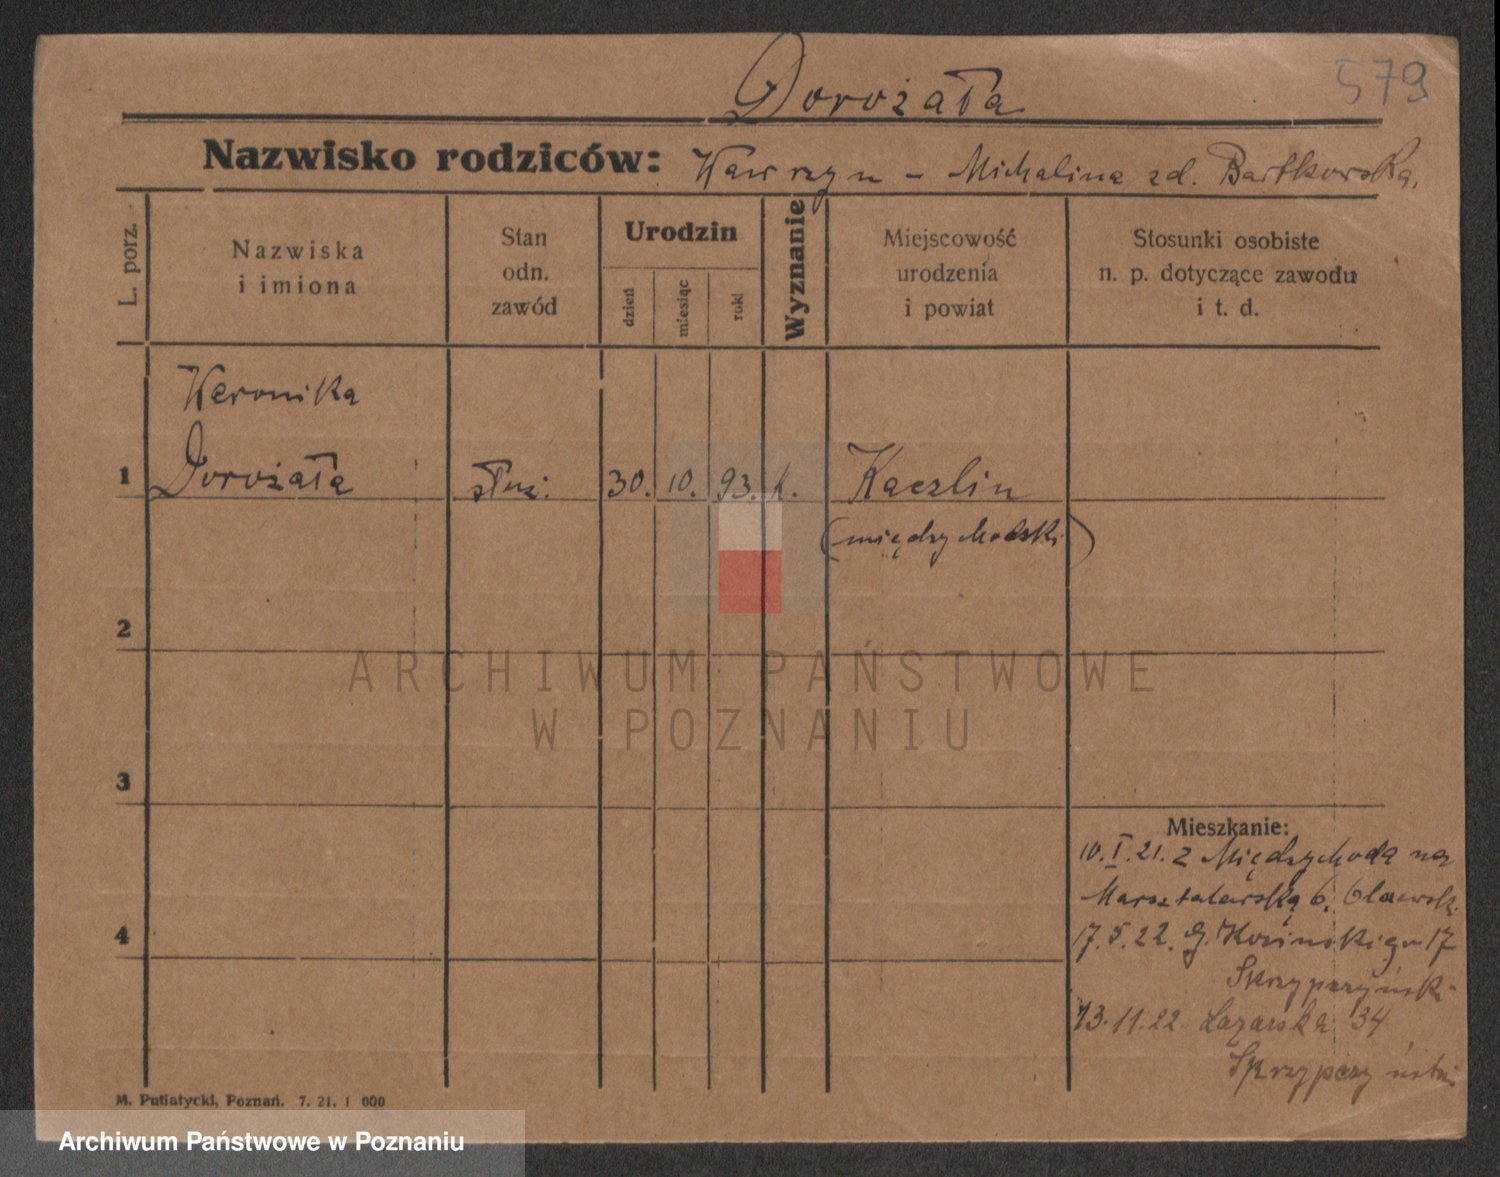 579
Dorożała
Nazwisko rodziców: Wawrzyn - Michalina zd. Bartkowska,
L. porz.
Nazwiska
i imiona
Stan
odn.
zawód
Urodzin
dzień
miesiąc
rok
Wyznanie
Miejscowość
urodzenia
i powiat
Stosunki osobiste
n. p. dotyczące zawodu
i t. d.
Weronika
1 Dorożała służ. 30. 10. 93. k. Kaczlin
(międzychodzki)
2
3
4
Mieszkanie:
10.I.21. z Międzychoda na
Marsztalarską 6,
17.5.22. G. Kosińskiego 17
Skrzypczyński
13.11.22 Łazarska 34
Skrzypczyński
M. Putiatycki, Poznań. 7. 21. 1 000
ARCHIWUM PAŃSTWOWE
W POZNANIU
Archiwum Państwowe w Poznaniu